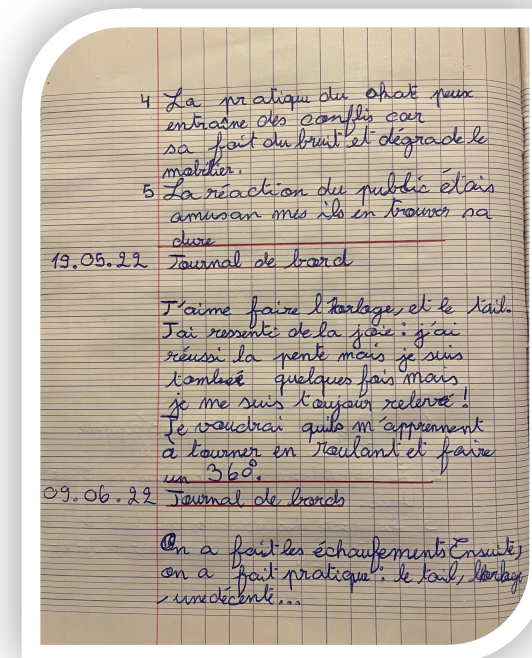 4 La pratique du skat peux
entraîne des conflis car
sa fait du bruit et dégrade le
mobilier.
5 La réaction du public étais
amusan mes ils en trouver sa
dure
19.05.22 Journal de bord
J'aime faire l'horlage, et le tail.
J'ai ressenti de la joie : j'ai
réussi la pente mais je suis
tombeé quelques fois mais
je me suis toujour relevé !
Je voudrai quils m'apprennent
à tourner en roulant et faire
un 360°.
09.06.22 Journal de bords
On a fait les échaufements Ensuite,
on a fait pratique : le tail, l'horlage
, une décente...